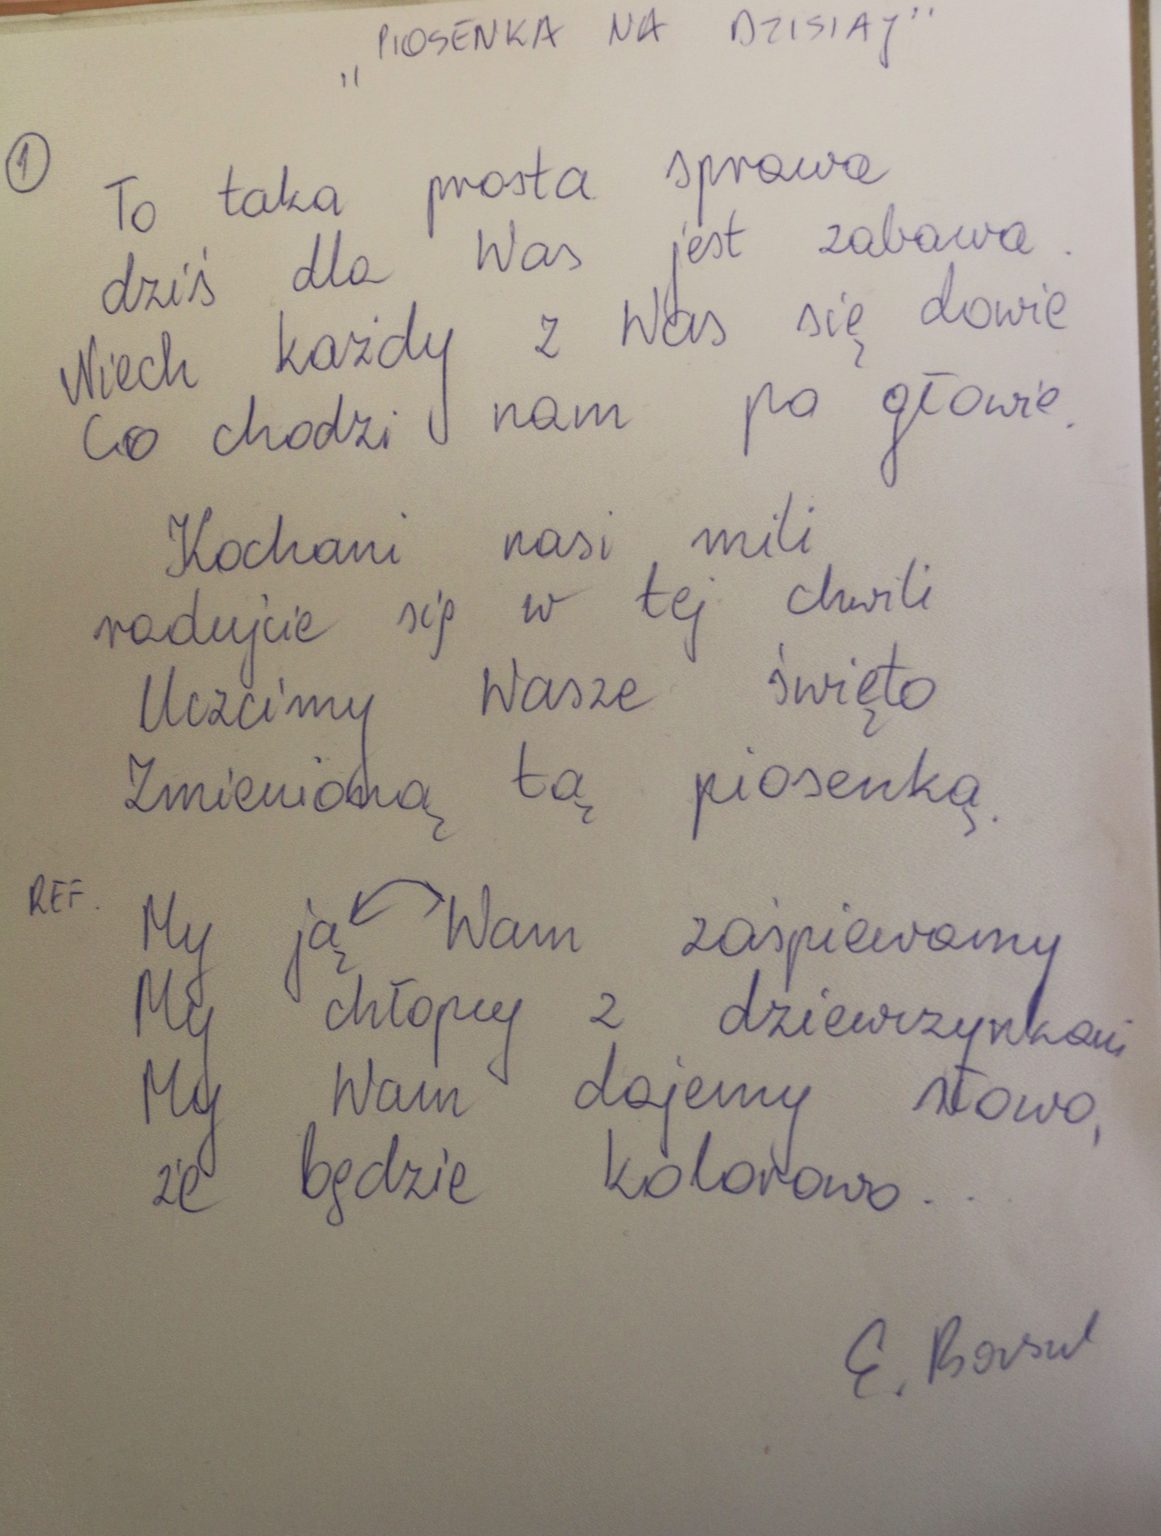 „PIOSENKA NA DZISIAJ"
① To taka prosta sprawa
dziś dla Was jest zabawa.
Niech każdy z Was się dowie
Co chodzi nam po głowie.
Kochani nasi mili
radujcie się w tej chwili
Uczcimy Wasze święto
Zmienioną tą piosenką.
REF. My ją Wam zaśpiewamy
My chłopcy z dziewczynkami
My Wam dajemy słowo,
że będzie kolorowo...
E.